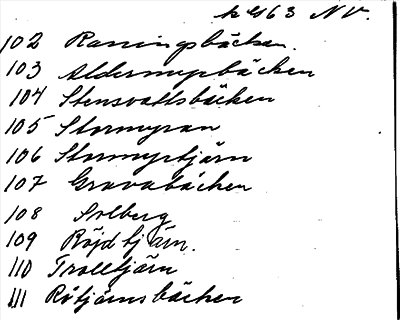 463 NV.
102 Ranningsbäcken.
103 Aldermyrbäcken
104 Stensvattsbäcken
105 Stormyran
106 Stormyrtjärn
107 Gravabäcken
108 Solberg
109 Röjdtjärn.
110 Trolltjärn
111 Rötjärnsbäcken